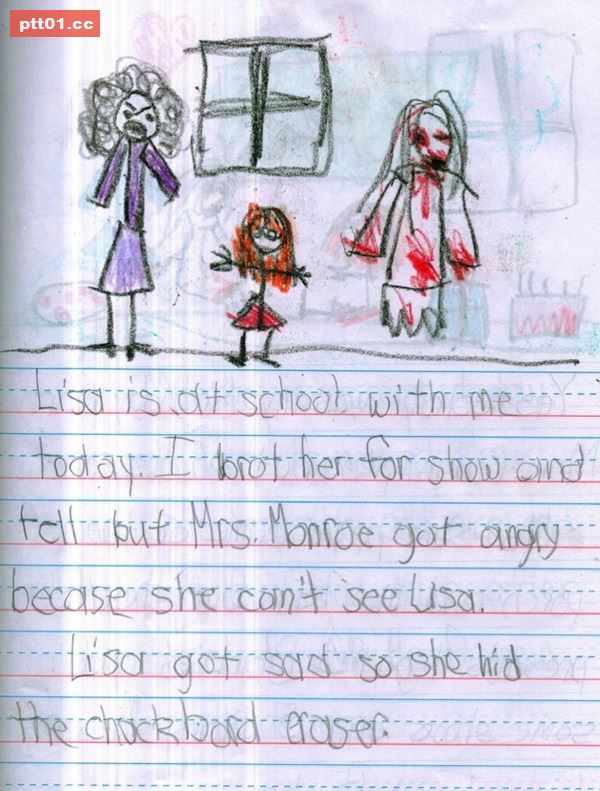 ptt01.cc
Lisa is at school with me
today. I brot her for show and
tell but Mrs. Monroe got angry
becase she can't see Lisa.
Lisa got sad so she hid
the chackbord eraser.